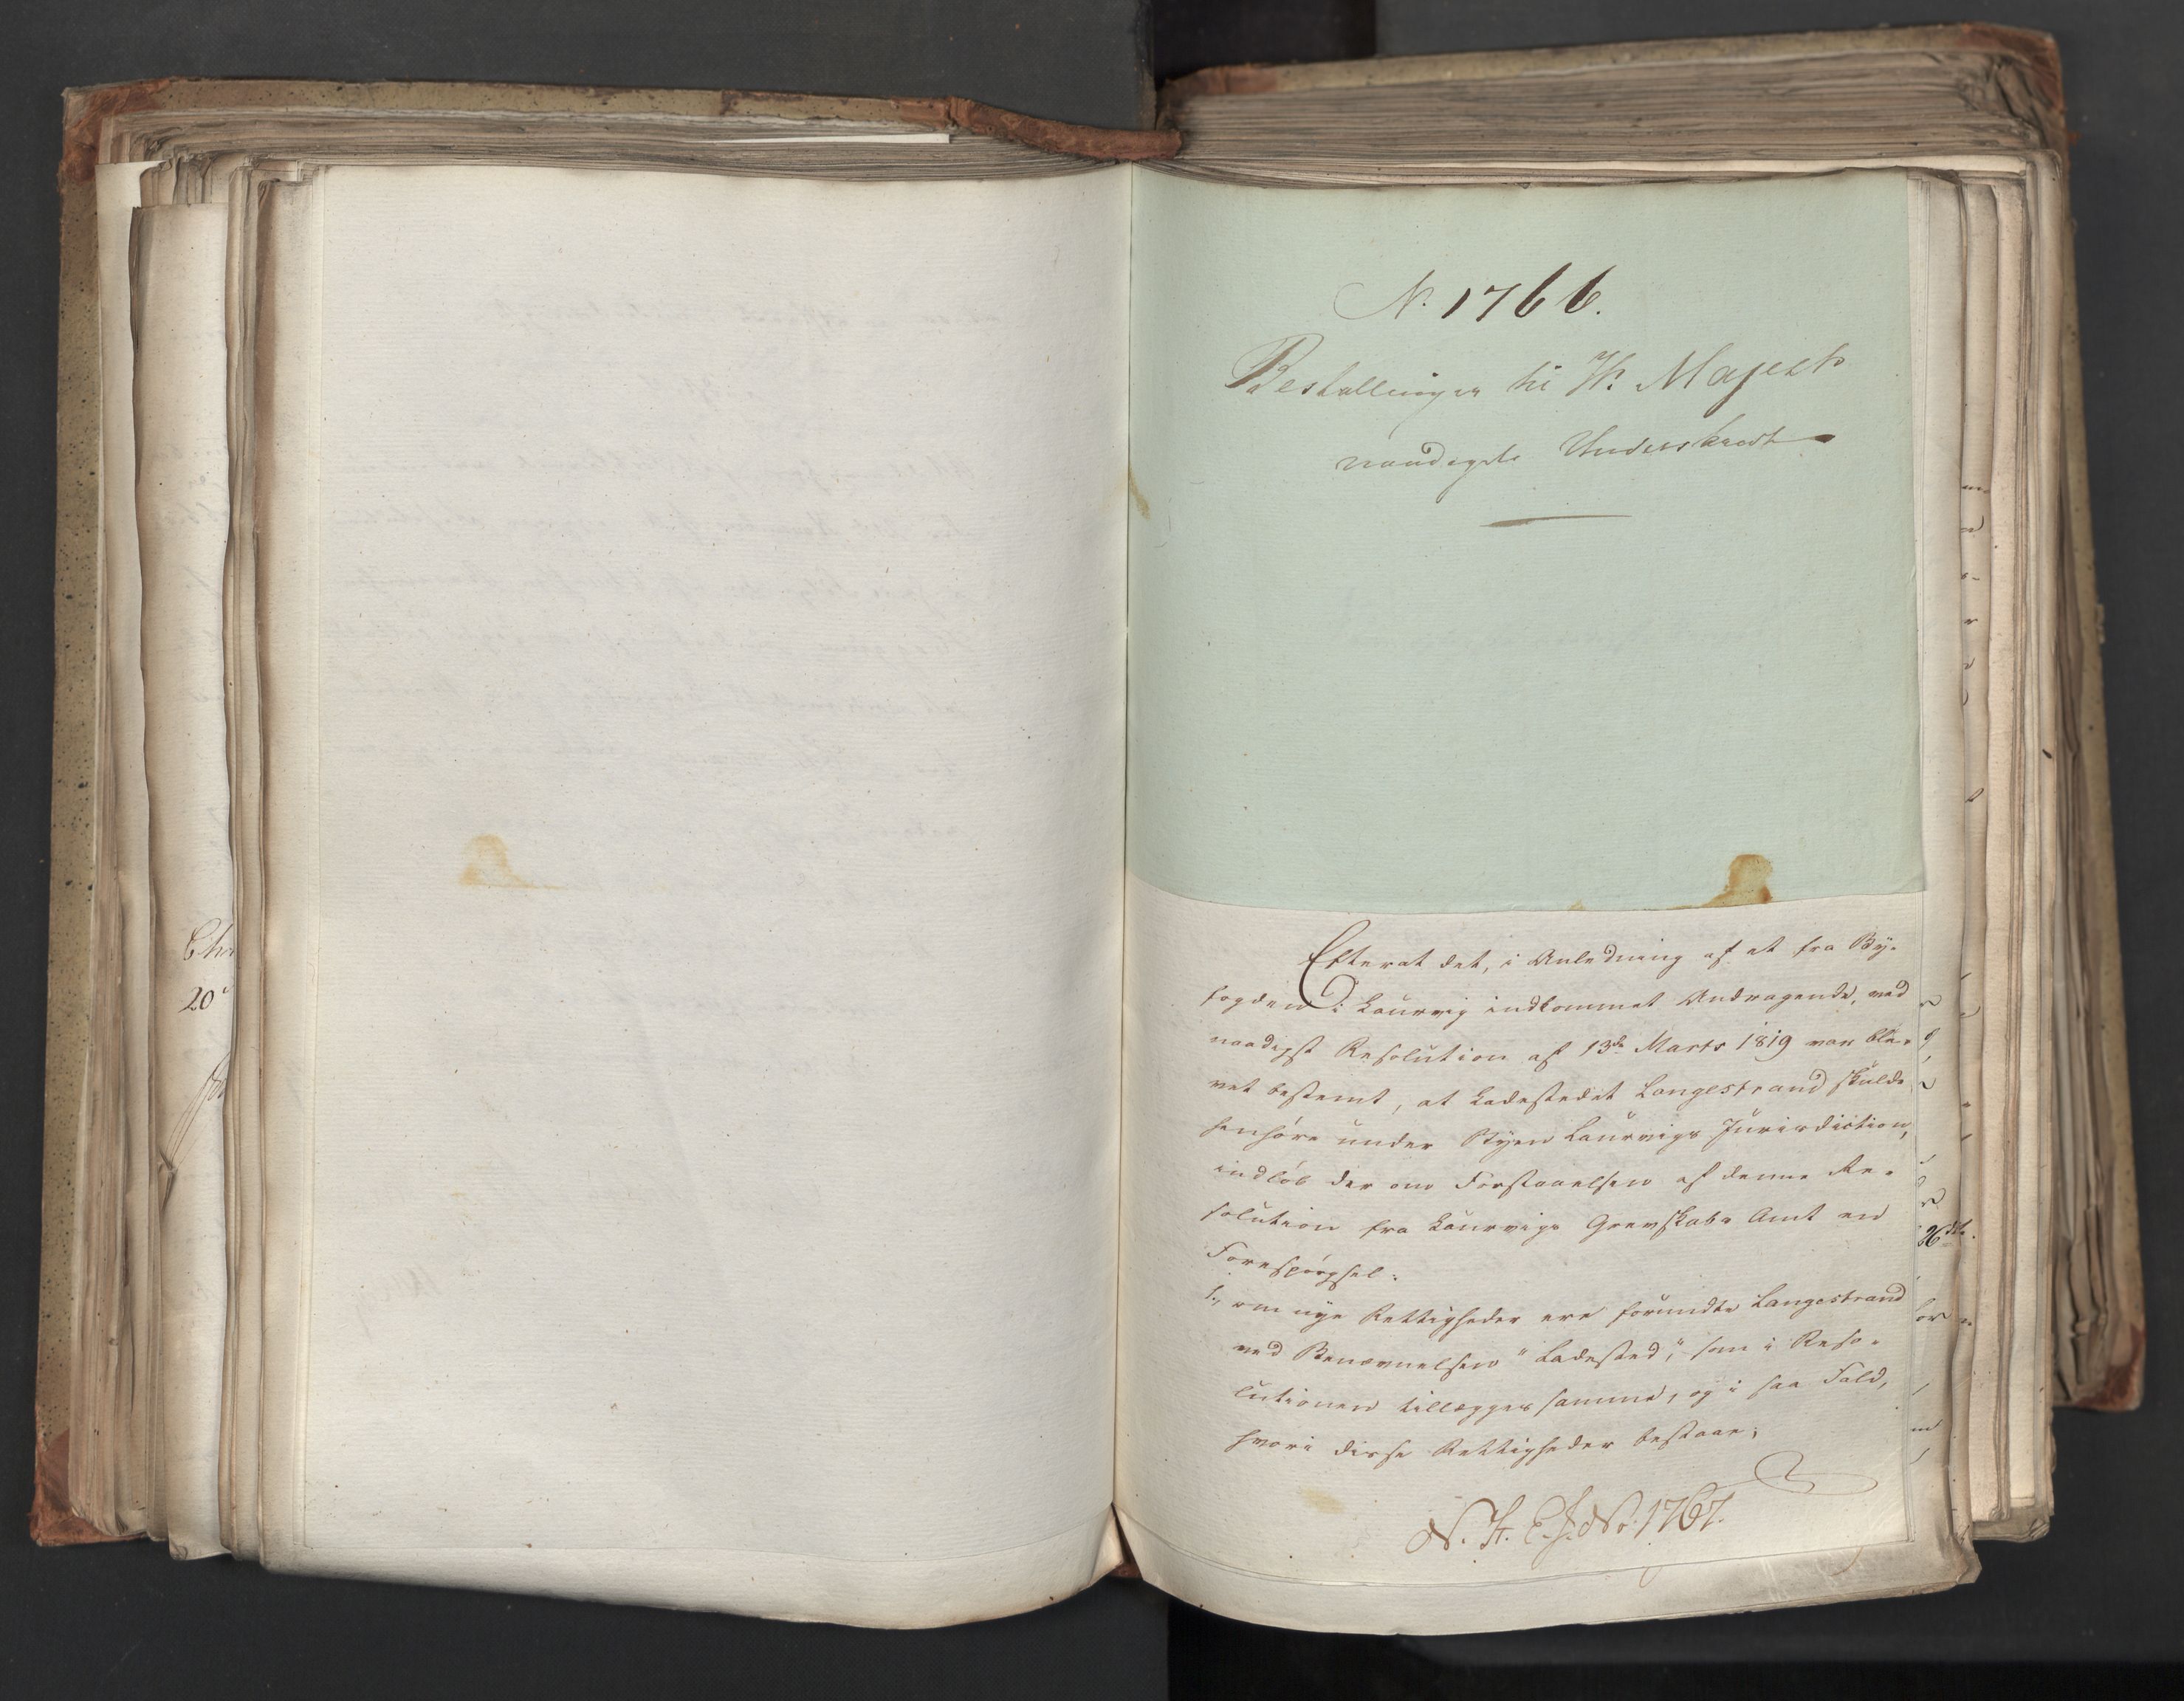 Chr
20
N. 1766.
Bestallinger til H. Majests
naadigste Underskrivt
Efterat det, i Anledning af et fra By-
fogden i Laurvig indkommet Andragende, ved
naadigst Resolution af 13de Marts 1819 var ble-
vet bestemt, at Ladestedet Langestrand skulde
henhøre under Byen Laurvigs Jurisdiction,
indløb der om Forstaaelsen af denne Re-
solution fra Laurvigs Grevskabs Amt en
Forespørgsel:
1., om nye Rettigheder ere forundte Langestrand
ved Benævnelsen "Ladested", som i Reso-
lutionen tillægges samme, og i saa Fald,
hvori disse Rettigheder bestaae;
N. H. E. J. No. 1767.
26de